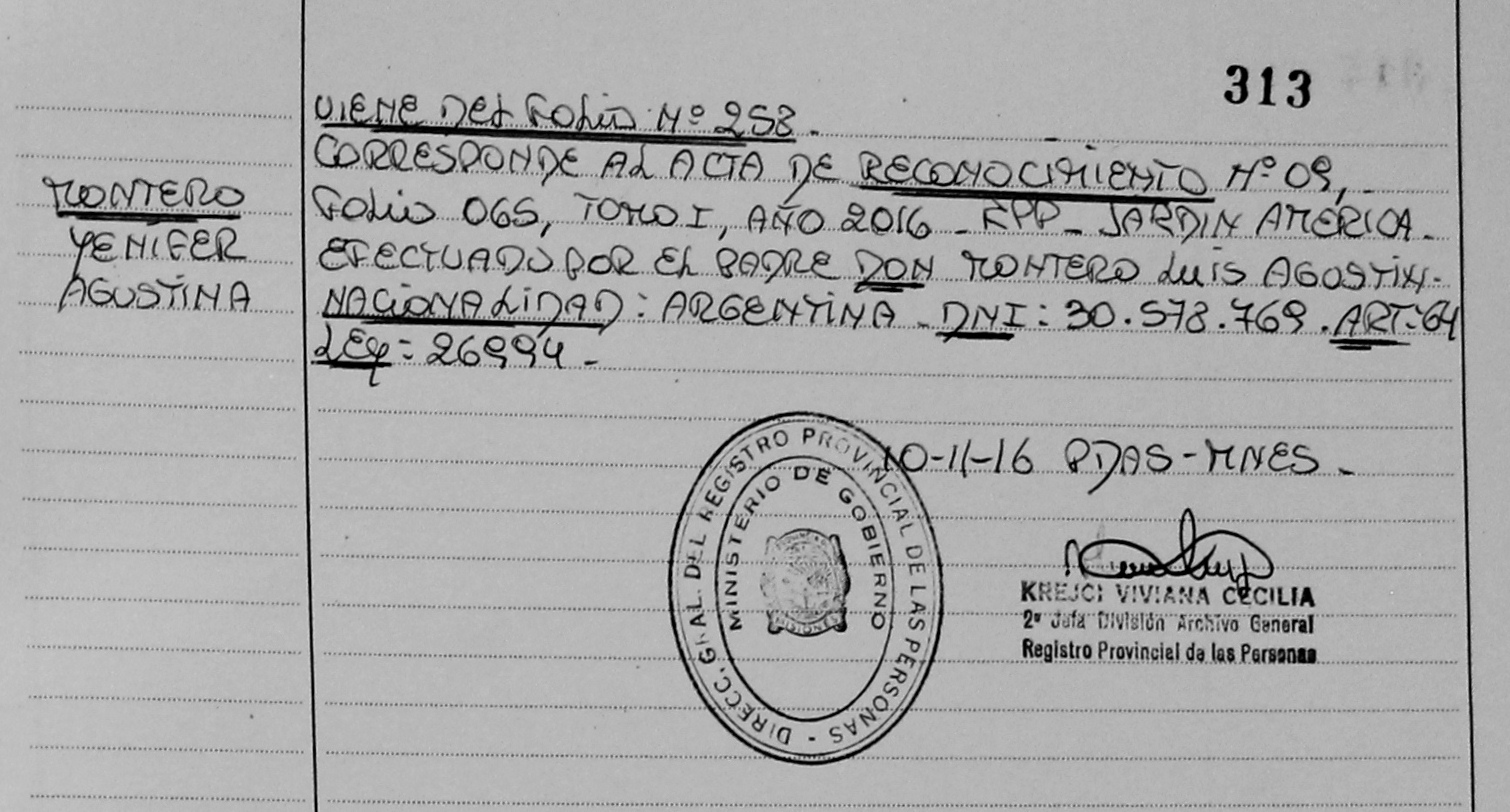 313
VIENE DEL FOLIO Nº 258.
CORRESPONDE AL ACTA DE RECONOCIMIENTO Nº 09,-
MONTERO
FOLIO 065, TOMO I, AÑO 2016 - RPP - JARDIN AMERICA -
YENIFER
EFECTUADO POR EL PADRE DON MONTERO LUIS AGOSTIN-
AGUSTINA
NACIONALIDAD: ARGENTINA - DNI: 30.578.769. ART: 64
LEY: 26994 -
10-11-16 PDAS-MNES -
DIRECC. GRAL. DEL REGISTRO PROVINCIAL DE LAS PERSONAS -
MINISTERIO DE GOBIERNO
MISIONES
KREJCI VIVIANA CECILIA
2ª Jefa División Archivo General
Registro Provincial de las Personas